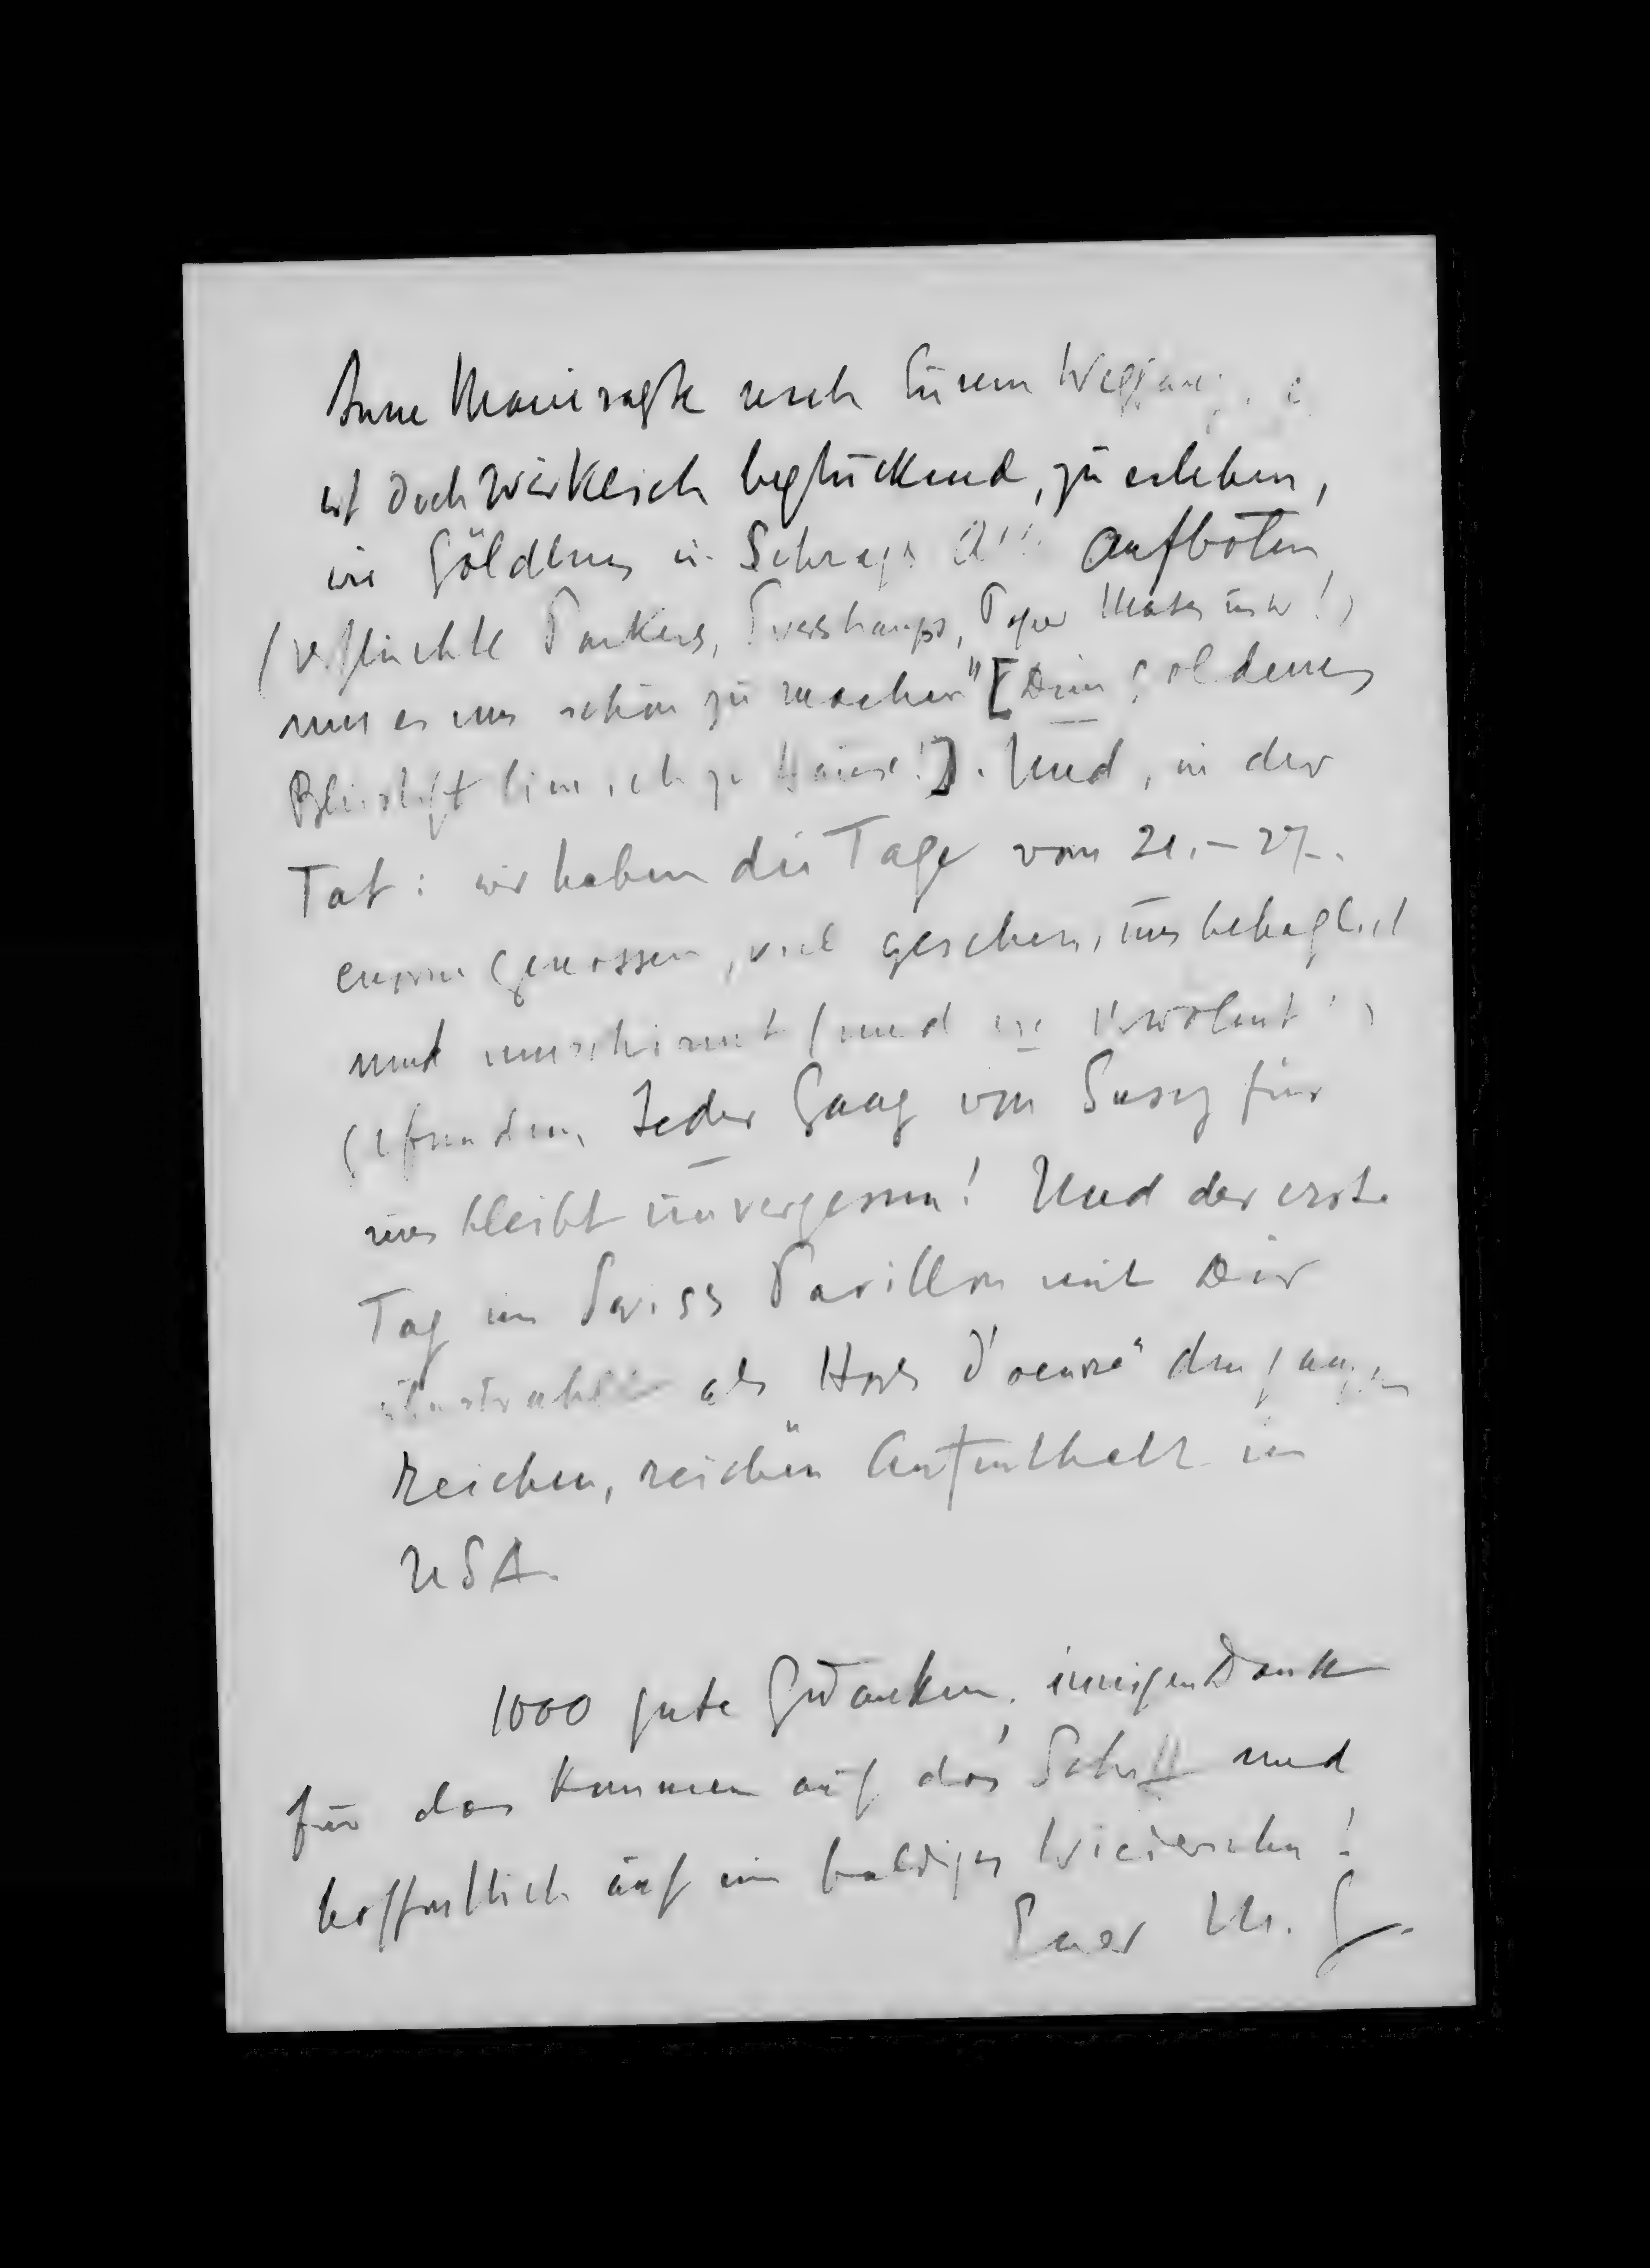 Anne Marie sagte nach Eurem Weggang
ist doch wirklich beglückend, zu erleben,
wie Göldens u. Schrafs aufboten
(verfluchte Parkers, Paper Mates usw!)
um es uns schön zu machen" [Dein goldenes
Bleistift liess ich zu Hause!]. Und, in der
Tat: wir haben die Tage vom 21.–27.
enorm genossen, viel gesehen, uns behaglich
und umschirmt (und wie verwöhnt!)
gefunden. Jeder Gang von Susy für
uns bleibt unvergessen! Und der erste
Tag im Swiss Pavillon mit Dir
überstrahlte als Hors d'oeuvre den ganzen
reichen, reichen Aufenthalt in
USA.
1000 gute Gedanken, innigen Dank
für das Kommen auf das Schiff und
hoffentlich auf ein baldiges Wiedersehn!
Euer M. G.